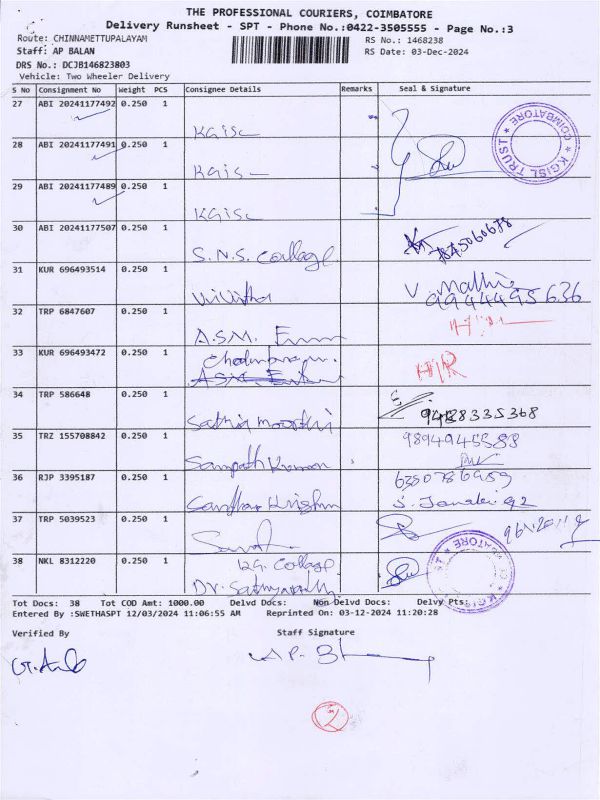 THE PROFESSIONAL COURIERS, COIMBATORE
Delivery Runsheet - SPT - Phone No.:0422-3505555 - Page No.:3
Route: CHINNAMETTUPALAYAM
RS No.: 1468238
Staff: AP BALAN
RS Date: 03-Dec-2024
DRS No.: DCJB146823803
Vehicle: Two Wheeler Delivery
S No Consignment No Weight PCS Consignee Details Remarks Seal & Signature
27 ABI 20241177492 0.250 1
KGISL
KGISL TRUST * COIMBATORE *
28 ABI 20241177491 0.250 1
KGISL
29 ABI 20241177489 0.250 1
KGISL
30 ABI 20241177507 0.250 1
S.N.S. College 7845060678
31 KUR 696493514 0.250 1
9944495636
32 TRP 6847607 0.250 1
A.S.M.
33 KUR 696493472 0.250 1
H/R
34 TRP 586648 0.250 1
Sathia moorthi
35 TRZ 155708842 0.250 1
9894945588
Sampath Kumar
36 RJP 3395187 0.250 1
S. Janaki
37 TRP 5039523 0.250 1
38 NKL 8312220 0.250 1
KG. College
Dr. Sathyapathy
Tot Docs: 38 Tot COD Amt: 1000.00 Delvd Docs: Non Delvd Docs: Delvy Pts:
Entered By :SWETHASPT 12/03/2024 11:06:55 AM Reprinted On: 03-12-2024 11:20:28
Verified By Staff Signature